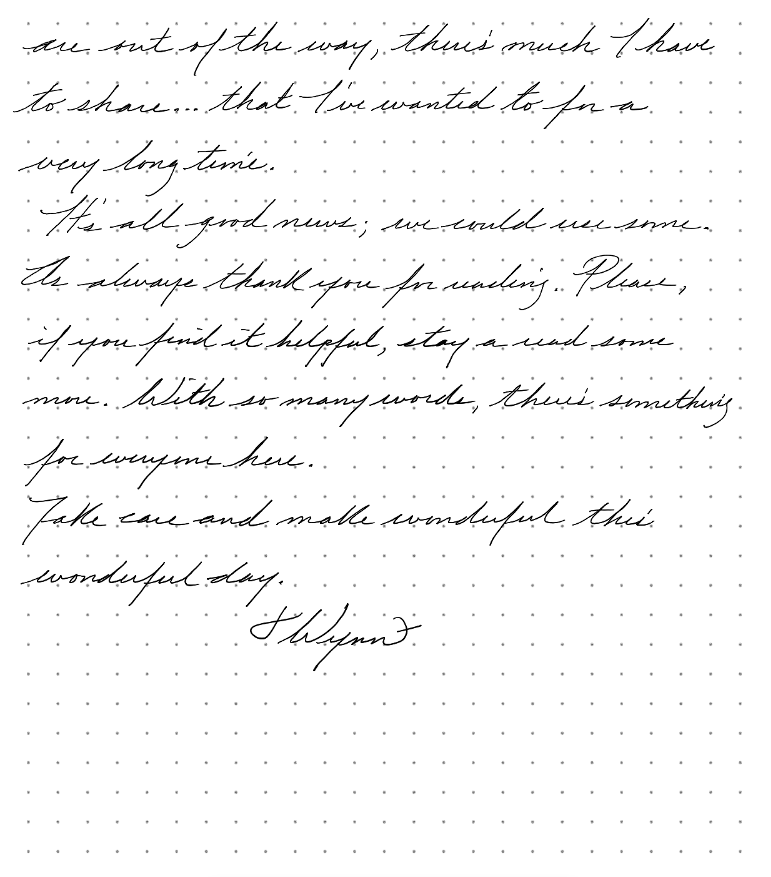 are out of the way, there's much I have
to share... that I've wanted to for a
very long time.
It's all good news; we could use some.
As always thank you for reading. Please,
if you find it helpful, stay a read some
more. With so many words, there's something
for everyone here.
Take care and make wonderful this
wonderful day.
Wynn